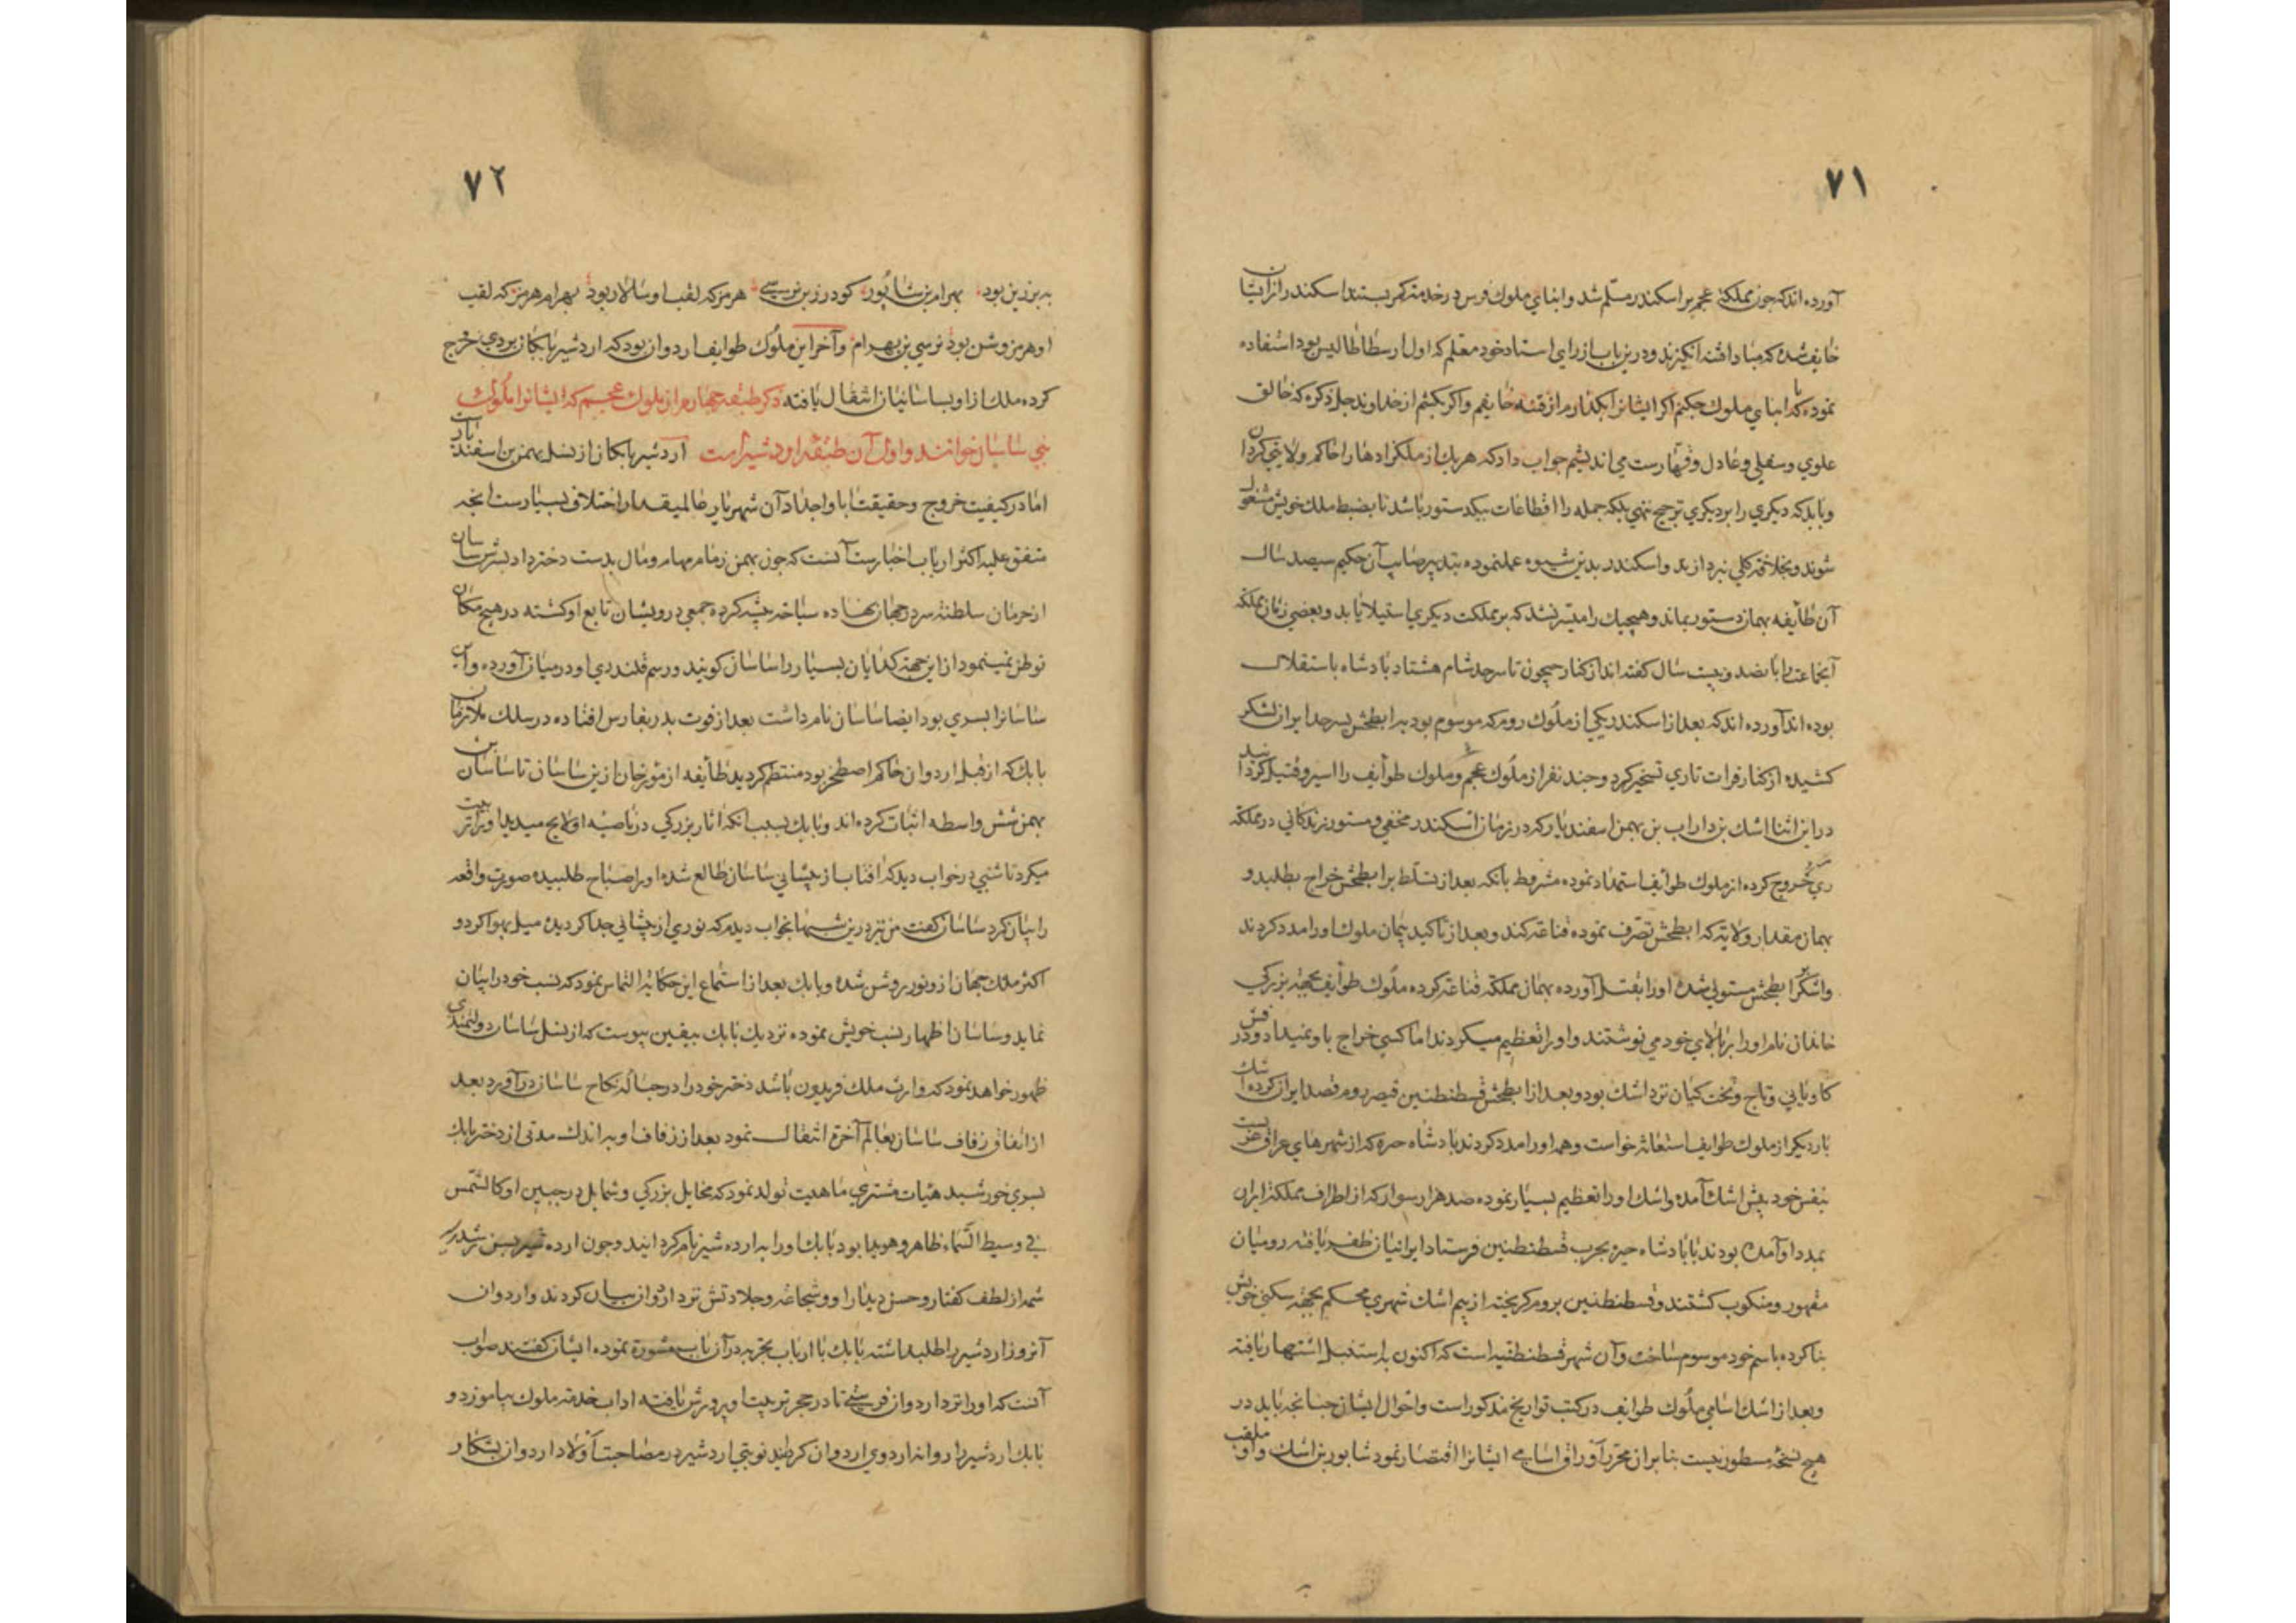 ۷۱
آورده اند که چون مملکت عجم بر اسکندر مسلم شد و ابنای ملوک فرس در خدمت کمر بستند اسکندر از ایشان
خایف شده که مبادا فتنه انگیزند و درین باب از رای استاد خود معلم که اول ارسطاطالیس بود استفاده
نموده که با ابنای ملوک چکنم اکر ایشانرا بکذارم از فتنه خایفم و اکر بکشم از خداوند جل ذکره که خالق
علوی و سفلی و عادل و قهارست می اندیشم جواب داد که هر یک از ملکزادها را حاکم ولایتی کردان
و باید که دیکری را بر دیکری ترجیح ننهی بلکه جمله را اقطاعات بیکدستور باشد تا بضبط ملک خویش مشغول
شوند و بخلافت کلی نپردازند و اسکندر بدین شیوه عمل نموده بتدبیر صایب آن حکیم سیصد سال
آن طایفه بهمان دستور بماند و هیچیک را میسر نشد که بر مملکت دیکری استیلا یابد و بعضی زمان مملکت
آنجماعت را پانصد و بیست سال کفته اند از کنار جیحون تا سرحد شام هشتاد پادشاه باستقلال
بوده اند آورده اند که بعد از اسکندر یکی از ملوک روم که موسوم بود به ابطحش بسرحد ایران لشکر
کشیده از کنار فرات تا ری تسخیر کرد و چند نفر از ملوک عجم و ملوک طوایف را اسیر و قتیل کردانید
در این اثنا اشک بن داراب بن بهمن اسفندیار که در زمان اسکندر مخفی و مستور زندکانی در مملکت
ری خروج کرده از ملوک طوایف استمداد نموده مشروط بانکه بعد از تسلط بر ابطحش خراج نطلبد و
بهمان مقدار ولایت که ابطحش تصرف نموده قناعت کند و بعد از تاکید پیمان ملوک او را مدد کردند
و اشک بر ابطحش مستولی شده او را بقتل آورده بهمان مملکت قناعت کرده ملوک طوایف بجهة بزرکی
خاندان نام او را بر بالای خود می نوشتند و او را تعظیم میکردند اما کسی خراج باو نمیداد و درفش
کاویانی و تاج و تخت کیان نزد اشک بود و بعد از ابطحش قسطنطنین قیصر روم قصد ایران کرده اشک
بار دیکر از ملوک طوایف استعانة خواست و همه او را مدد کردند پادشاه حیره که از شهرهای عراق عربست
بنفس خود پیش اشک آمده و اشک او را تعظیم بسیار نموده صد هزار سوار که از اطراف مملکت ایران
بمدد او آمده بودند با پادشاه حیره بحرب قسطنطنین فرستاد ایرانیان ظفر یافته رومیان
مقهور و منکوب کشتند و قسطنطنین بروم کریخته از بیم اشک شهری محکم بجهة سکنی خویش
بنا کرده باسم خود موسوم ساخت و آن شهر قسطنطنیه است که اکنون باستنبل اشتهار یافته
و بعد از اشک اسامی ملوک طوایف در کتب تواریخ مذکور است و احوال ایشان چنانچه باید در
هیچ نسخه مسطور نیست بنا بر ان محرر اوراق اسامی ایشانرا اقتصار نمود شاپور بن اشک و او ملقب
۷۲
به بزرین بود بهرام بن شاپور کودرز بن نرسی هرمز که لقب او سالار بود بهرام هرمز که لقب
او هرمز وشن بود نرسی بن بهرام و آخر این ملوک طوایف اردوان بود که اردشیر بابکان بر وی خروج
کرده ملک از او بساسانیان انتقال یافته ذکر طبقه چهارم از ملوک عجم که ایشانرا ملوک
بنی ساسان خوانند و اول آن طبقه اردشیر است اردشیر بابکان از نسل بهمن بن اسفندیارست
اما در کیفیت خروج و حقیقت ابا و اجداد آن شهریار عالیمقدار اختلاف بسیارست انچه
متفق علیه اکثر ارباب اخبارست آنست که چون بهمن زمام مهام و مال بدست دختر داد پسرش ساسان
از حرمان سلطنت سر در جهان نهاده سیاحت پیشه کرده جمعی درویشان تابع او کشته در هیچ مکان
توطن نمینمود از این جهت کدایان بسیار را ساسان کویند و رسم قلندری او در میان آورده و این
ساسانرا پسری بود ایضا ساسان نام داشت بعد از فوت پدر بفارس افتاده در سلک ملازمان
بابک که از قبل اردوان حاکم اصطخر بود منتظم کردید طایفه از مورخان ازین ساسان تا ساسان بن
بهمن شش واسطه اثبات کرده اند و بابک بسبب انکه اثار بزرکی در ناصیه او لایح میدید او را تربیت
میکرد تا شبی در خواب دید که افتاب از پیشانی ساسان طالع شده او را صباح طلبیده صورت واقعه
را بیان کرد ساسان کفت من نیز درین شبها بخواب دیدم که نوری از پیشانی جدا کردیده میل بهوا کرد و
اکثر ملک جهان از و نور روشن شده و بابک بعد از استماع این حکایة التماس نمود که نسب خود را بیان
نماید و ساسان اظهار نسب خویش نموده نزدیک بابک بیقین پیوست که از نسل ساسان دولتمندی
ظهور خواهد نمود که وارث ملک فریدون باشد دختر خود را در حباله نکاح ساسان در آورد بعد
از اتفاق زفاف ساسان بعالم آخرة انتقال نمود بعد از زفاف او به اندک مدتی از دختر بابک
پسری خورشید هیات مشتری ماهیت تولد نمود که مخایل بزرکی و شمایل در جبین او کالشمس
فی وسیط السماء ظاهر و هویدا بود بابک او را به ارده شیر نام کردانید و چون ارده شیر بسن رشد رسید
شمه از لطف کفتار و حسن دیدار او و شجاعت و جلادتش نزد اردوان بیان کردند و اردوان
آنروز اردشیر را طلب داشته بابک با ارباب تجربه در آن باب مشورة نموده ایشان کفتند صواب
آنست که او را نزد اردوان فرستی تا در حجر تربیت او پرورش یافته اداب خدمت ملوک بیاموزد و
بابک اردشیر را روانه اردوی اردوان کردانید نوبتی اردشیر در مصاحبت اولاد اردوان بشکار